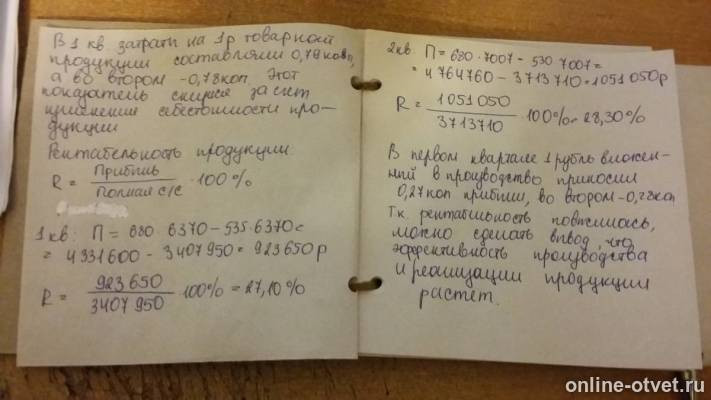 В 1 кв. затраты на 1р товарной
продукции составляли 0,79 коп,
а во втором - 0,78 коп Этот
показатель снизился за счет
изменения себестоимости про-
дукции
Рентабельность продукции
R = Прибыль / Полная с/с · 100 %
1 кв: П = 680 · 6370 - 535 · 6370 =
= 4331600 - 3407950 = 923650 р
R = 923650 / 3407950 · 100% = 27,10 %
2кв. П = 680 · 7007 - 530 · 7007 =
= 4764760 - 3713710 = 1051050 р
R = 1051050 / 3713710 · 100% = 28,30 %
В первом квартале 1 рубль вложен-
ный в производство приносил
0,27 коп прибыли, во втором - 0,28 коп
Т.к. рентабельность повысилась,
можно сделать вывод, что
эффективность производства
и реализации продукции
растет.
online-otvet.ru